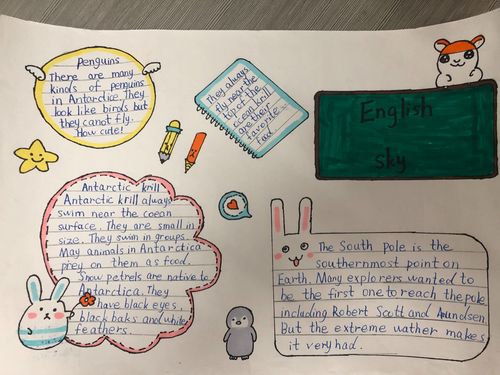 Penguins
There are many
kinds of penguins
in Antardice. They
look like birds but
they canot fly.
How cute!
They always
fly near the
top of the
ocean krill
are their
favorite
food
English
sky
Antarctic krill
Antarctic krill always
swim near the cocean
surface. They are small in
size. They swim in groups.
May animals in Antarctica
prey on them as food.
Snow petrels are native to
Antarctica. They
have black eyes,
black baks and white
feathers.
The South Pole is the
southernmost point on
Earth. Many explorers wanted to
be the first one to reach the pole
including Robert Scott and Amundsen.
But the extreme wather makes
it very had.